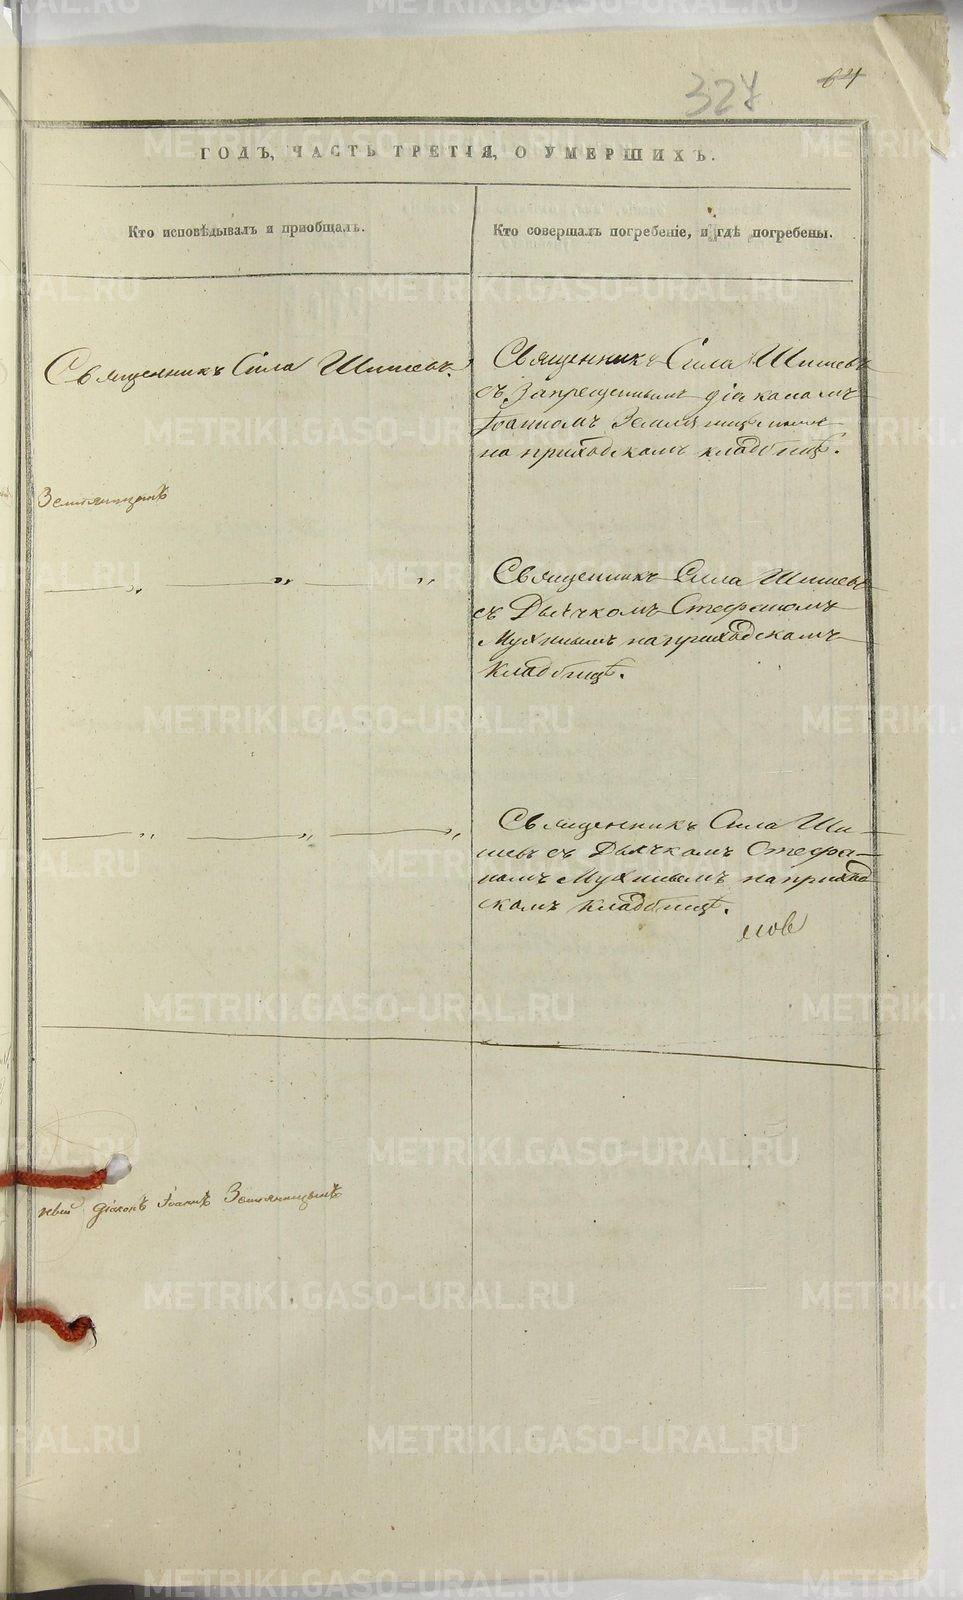 327
64
ГОДЪ, ЧАСТЬ ТРЕТІЯ, О УМЕРШИХЪ.
Кто исповѣдывалъ и приобщалъ.
Кто совершалъ погребеніе, и гдѣ погребены.
Священникъ Сила Шишевъ.
Священникъ Сила Шишевъ
съ Запрещеннымъ діакономъ
Іоанномъ Земляницынымъ
на приходскомъ кладбищѣ.
Земляницынъ
„ „ „
Священникъ Сила Шишевъ
съ Дьячкомъ Стефаномъ
Мухинымъ на приходскомъ
кладбищѣ.
„ „ „
Священникъ Сила Ши-
шевъ съ Дьячкомъ Стефа-
номъ Мухинымъ на приход
скомъ кладбищѣ.
діаконъ Іоаннъ Земляницынъ
METRIKI.GASO-URAL.RU